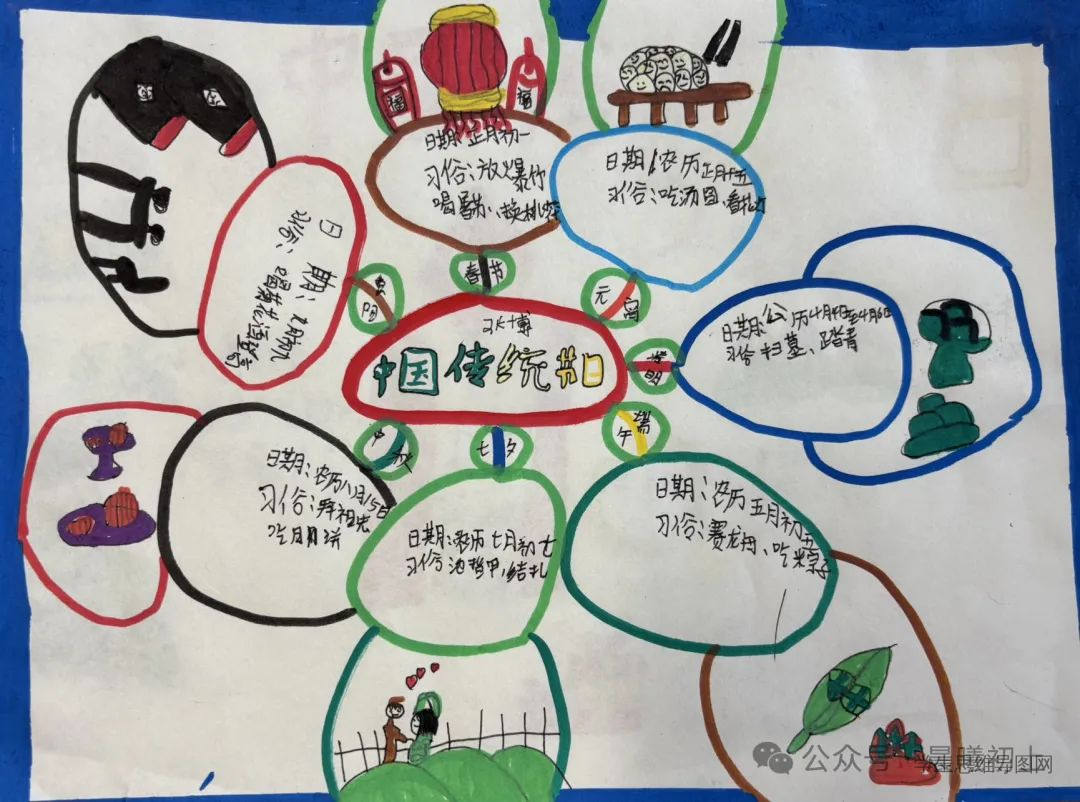 福
福
日期:正月初一
习俗:放爆竹
喝屠苏、换桃符
日期:农历正月十五
习俗:吃汤圆、看花灯
春节
元宵
重阳
日期:九月初九
习俗:
中国传统节日
清明
日期:公历4月4日至4月6日
习俗 扫墓、踏青
端午
日期:农历五月初五
习俗:赛龙舟、吃粽子
七夕
日期:农历七月初七
习俗 染指甲、结扎
中秋
日期:农历八月15日
习俗:拜祖先
吃月饼
公众号·星曦初上
思维导图网